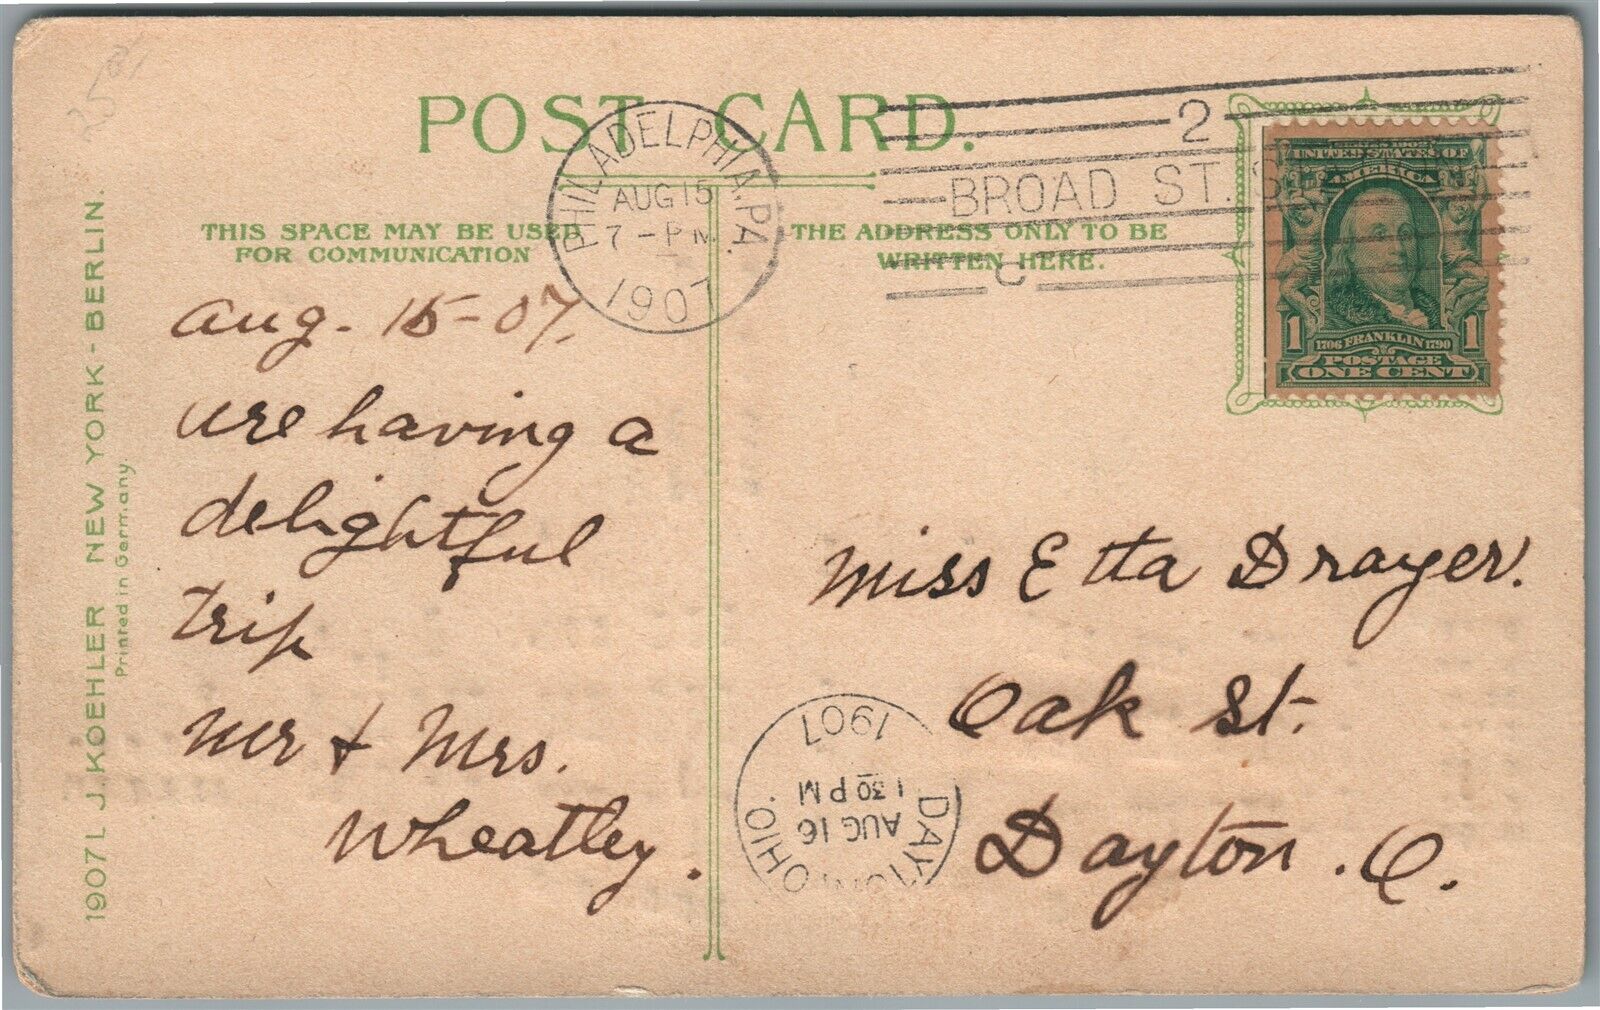 POST CARD.
THIS SPACE MAY BE USED
FOR COMMUNICATION
THE ADDRESS ONLY TO BE
WRITTEN HERE.
PHILADELPHIA, PA.
AUG 15
7 - PM
1907
2
BROAD ST. S
C
SERIES 1902
UNITED STATES OF
AMERICA
1 1
1706 FRANKLIN 1790
POSTAGE
ONE CENT
Aug. 15-07.
are having a
delightful
trip
Mr & Mrs.
Wheatley.
Miss Etta Drayer.
Oak St.
Dayton. O.
DAYTON, OHIO.
AUG 16
1 30 PM
1907
1907 L J. KOEHLER NEW YORK - BERLIN.
Printed in Germany.